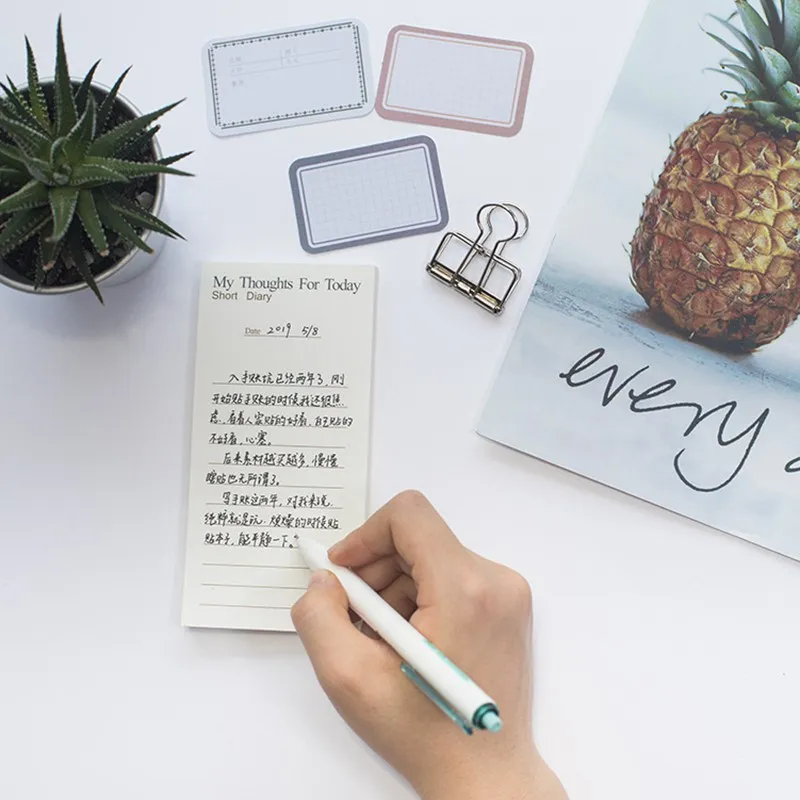 My Thoughts For Today
Short Diary
Date 2019 5/8
入手账坑已经两年了, 刚
开始贴手账的时候我还很焦
虑, 看着人家贴的好看, 自己贴的
不好看, 心塞。
后来素材越买越多, 慢慢
瞎贴也无所谓了。
写手账这两年, 对我来说,
纯粹就是玩, 烦燥的时候贴
贴本子, 能平静一下。
every